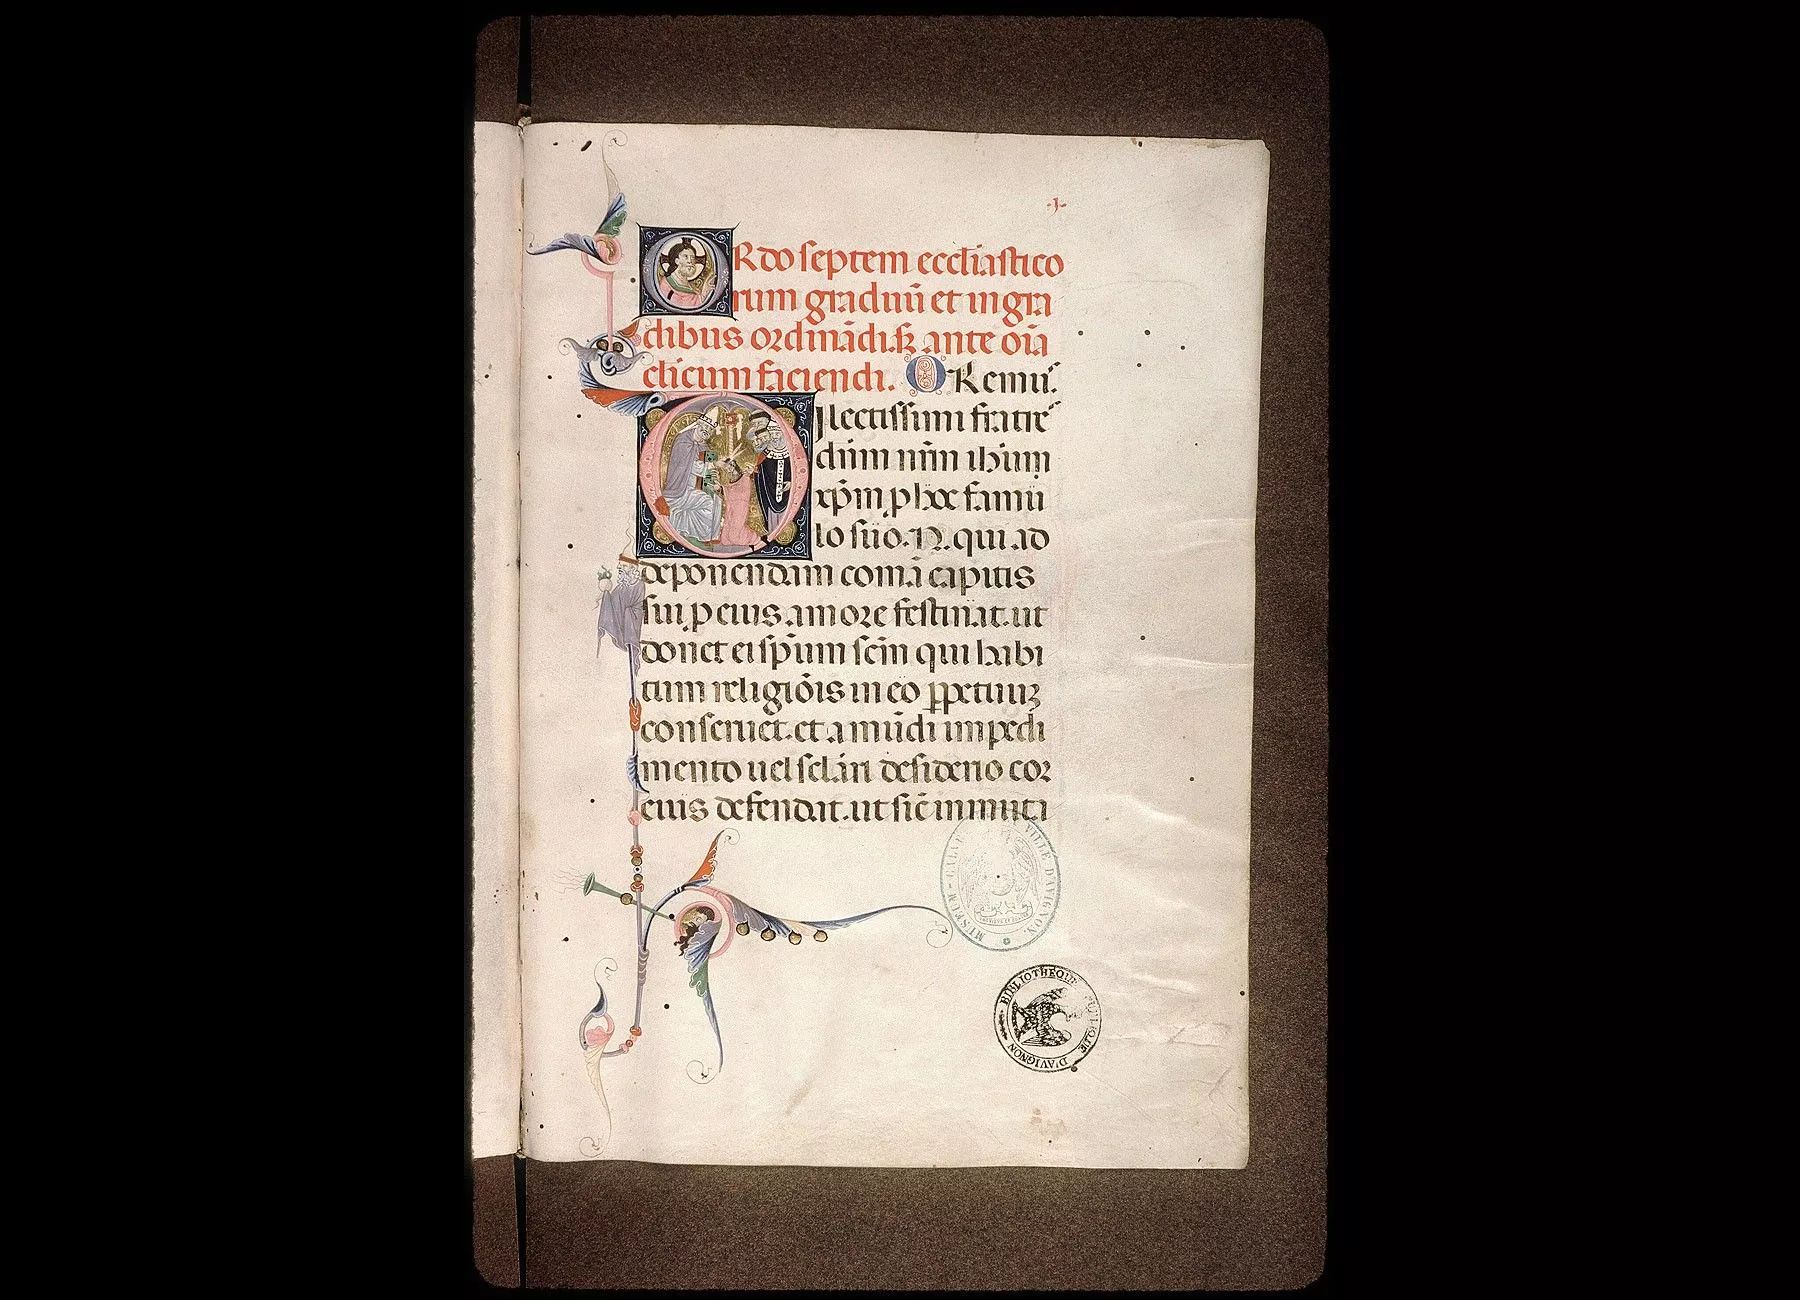 .1.
ORdo septem eccl̄iastico
rum graduū et in gra
dibus ordinādisꝫ ante oīa
cl̄icum faciendi. ORemus.
Ilectissimi fratres
dn̄m nr̄m ih̄um
xp̄m p hoc famu
lo suo .N. qui ad
deponendam comā capitis
sui p eius amore festinat. ut
donet ei sp̄um sc̄m qui habi
tum religiōis in eo ꝑpetuuꝫ
conseruet. et a mūdi impedi
mento uel sclāri desiderio cor
eius defendat. ut sic̄ inmuta
MUSEUM-CALVET VILLE D'AVIGNON.
BIBLIOTHEQUE PUBLIQUE D'AVIGNON